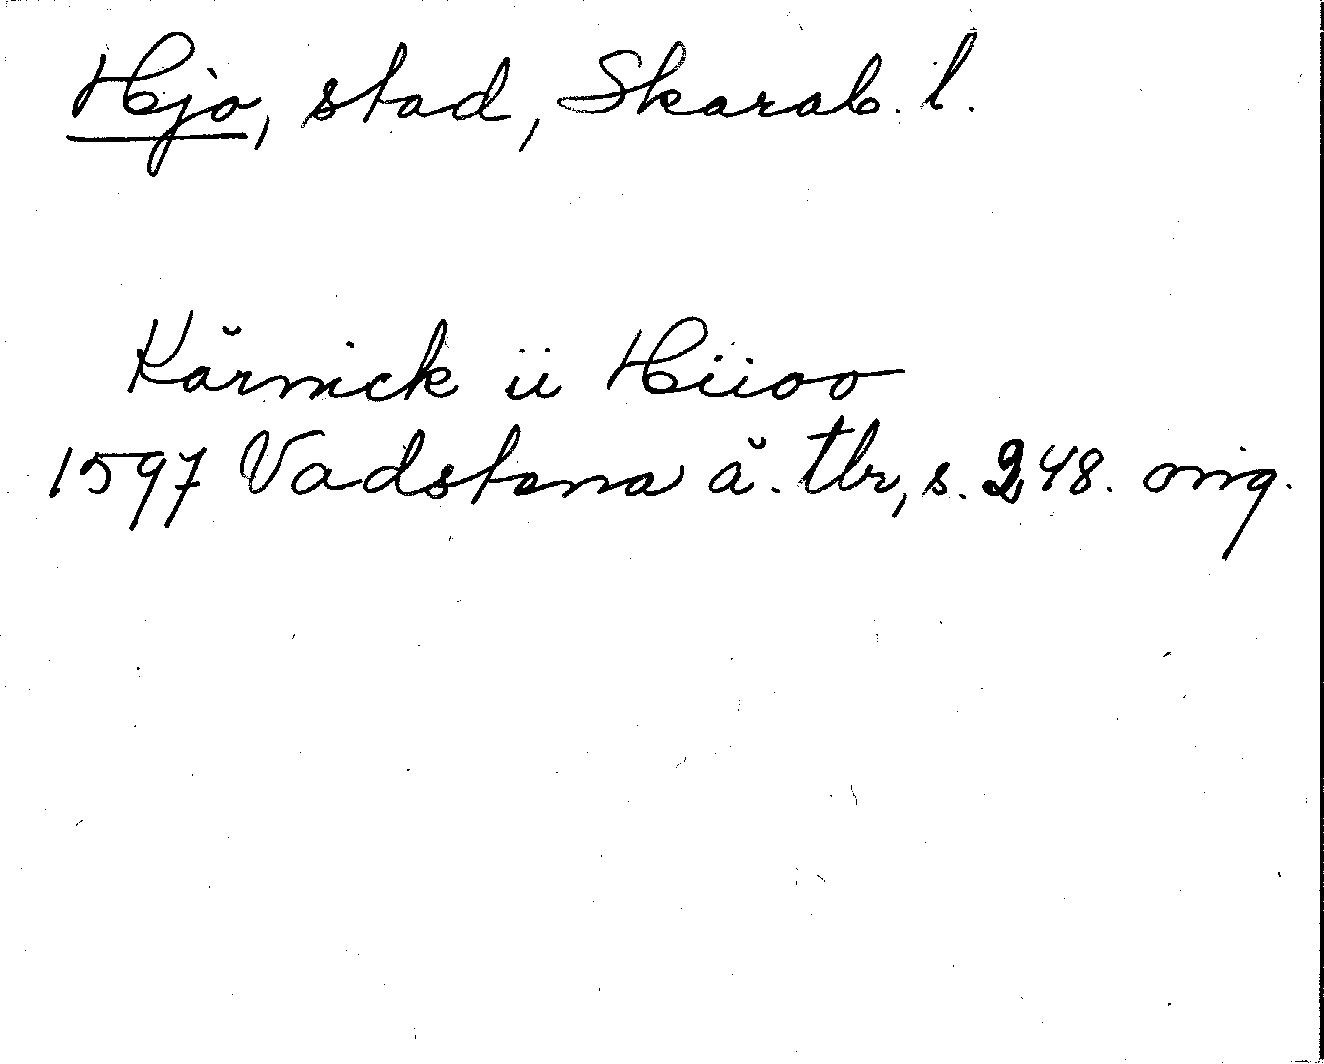 Hjo, stad, Skarab. l.
Kårnick ii Hiioo
1597 Vadstena ä. tbr, s. 248. orig.